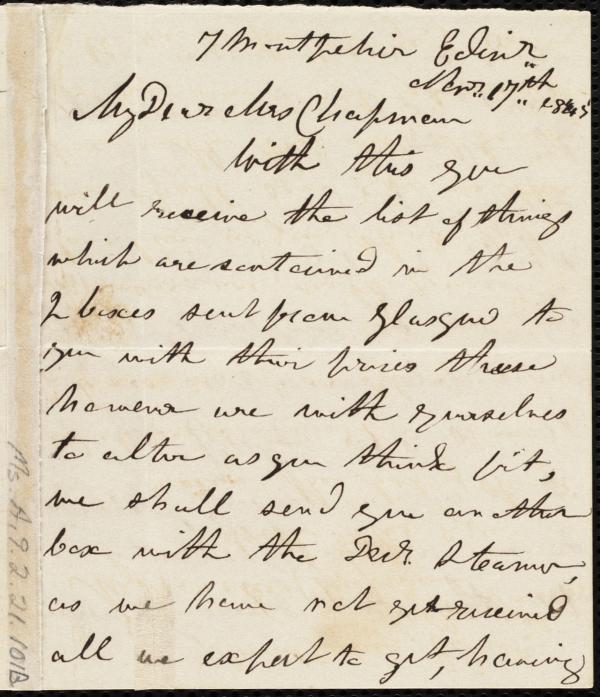 7 Montpelier Edinr
Novr. 17th 1845
My Dear Mrs Chapman
With this you
will receive the list of things
which are contained in the
2 boxes sent from Glasgow to
you with their prices these
however are with yourselves
to alter as you think fit,
we shall send you another
box with the Decr. Steamer,
as we have not yet received
all we expect to get, having
Ms. A. 9. 2. 21. 101B